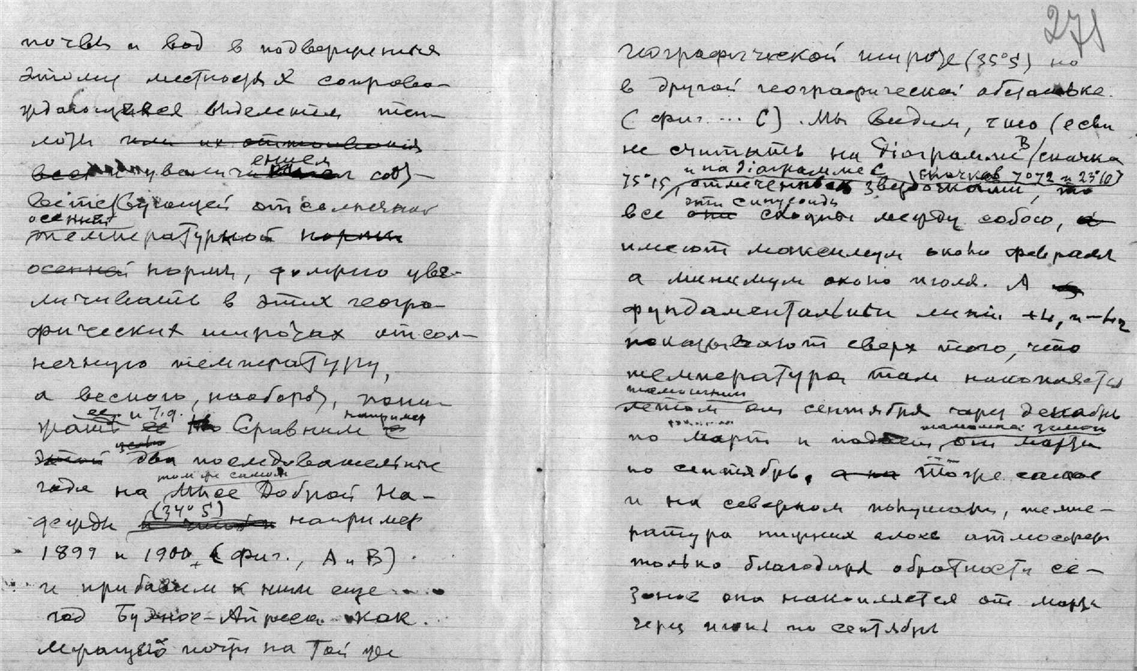 почвы и вод в подверженных
этому местностях сопрово-
ждающееся выделением теп-
лоты или их
увеличением соот-
ветствующей отсолнечной
осенний
температурной нормы
осенней нормы, должно уве-
личивать в этих геогра-
фических широтах отсол-
нечную температуру,
а весною, наоборот, пони-
жать ее и т.д. Сравним например
два последовательные
том же самом
года на Мысе Доброй На-
дежды (34°S) например
1899 и 1900 (фиг., А и В)
и прибавим к ним еще
год Буэнос-Айреса как
лежащего почти на той же
271
географической широте (35°S) но
в другой географической обстановке.
(фиг.... С). Мы видим, что (если
не считать на Диаграмме В скачка
и на диаграмме С скачков 7°72 и 23°10)
75°15 отмеченных звездочками, то
эти синусоиды
все они сходны между собою,
имеют максимум около февраля
а минимум около июля. А
фундаментальные линии
показывают сверх того, что
температура там накопляется
тамошним
летом от сентября через декабрь
тамошней зимой
по март и падает от марта
по сентябрь, а на Тоже самое
и на северном полушарии, темпе-
ратура нижних слоев атмосферы
только благодаря обратности се-
зонов она накопляется от марта
через июнь по сентябрь